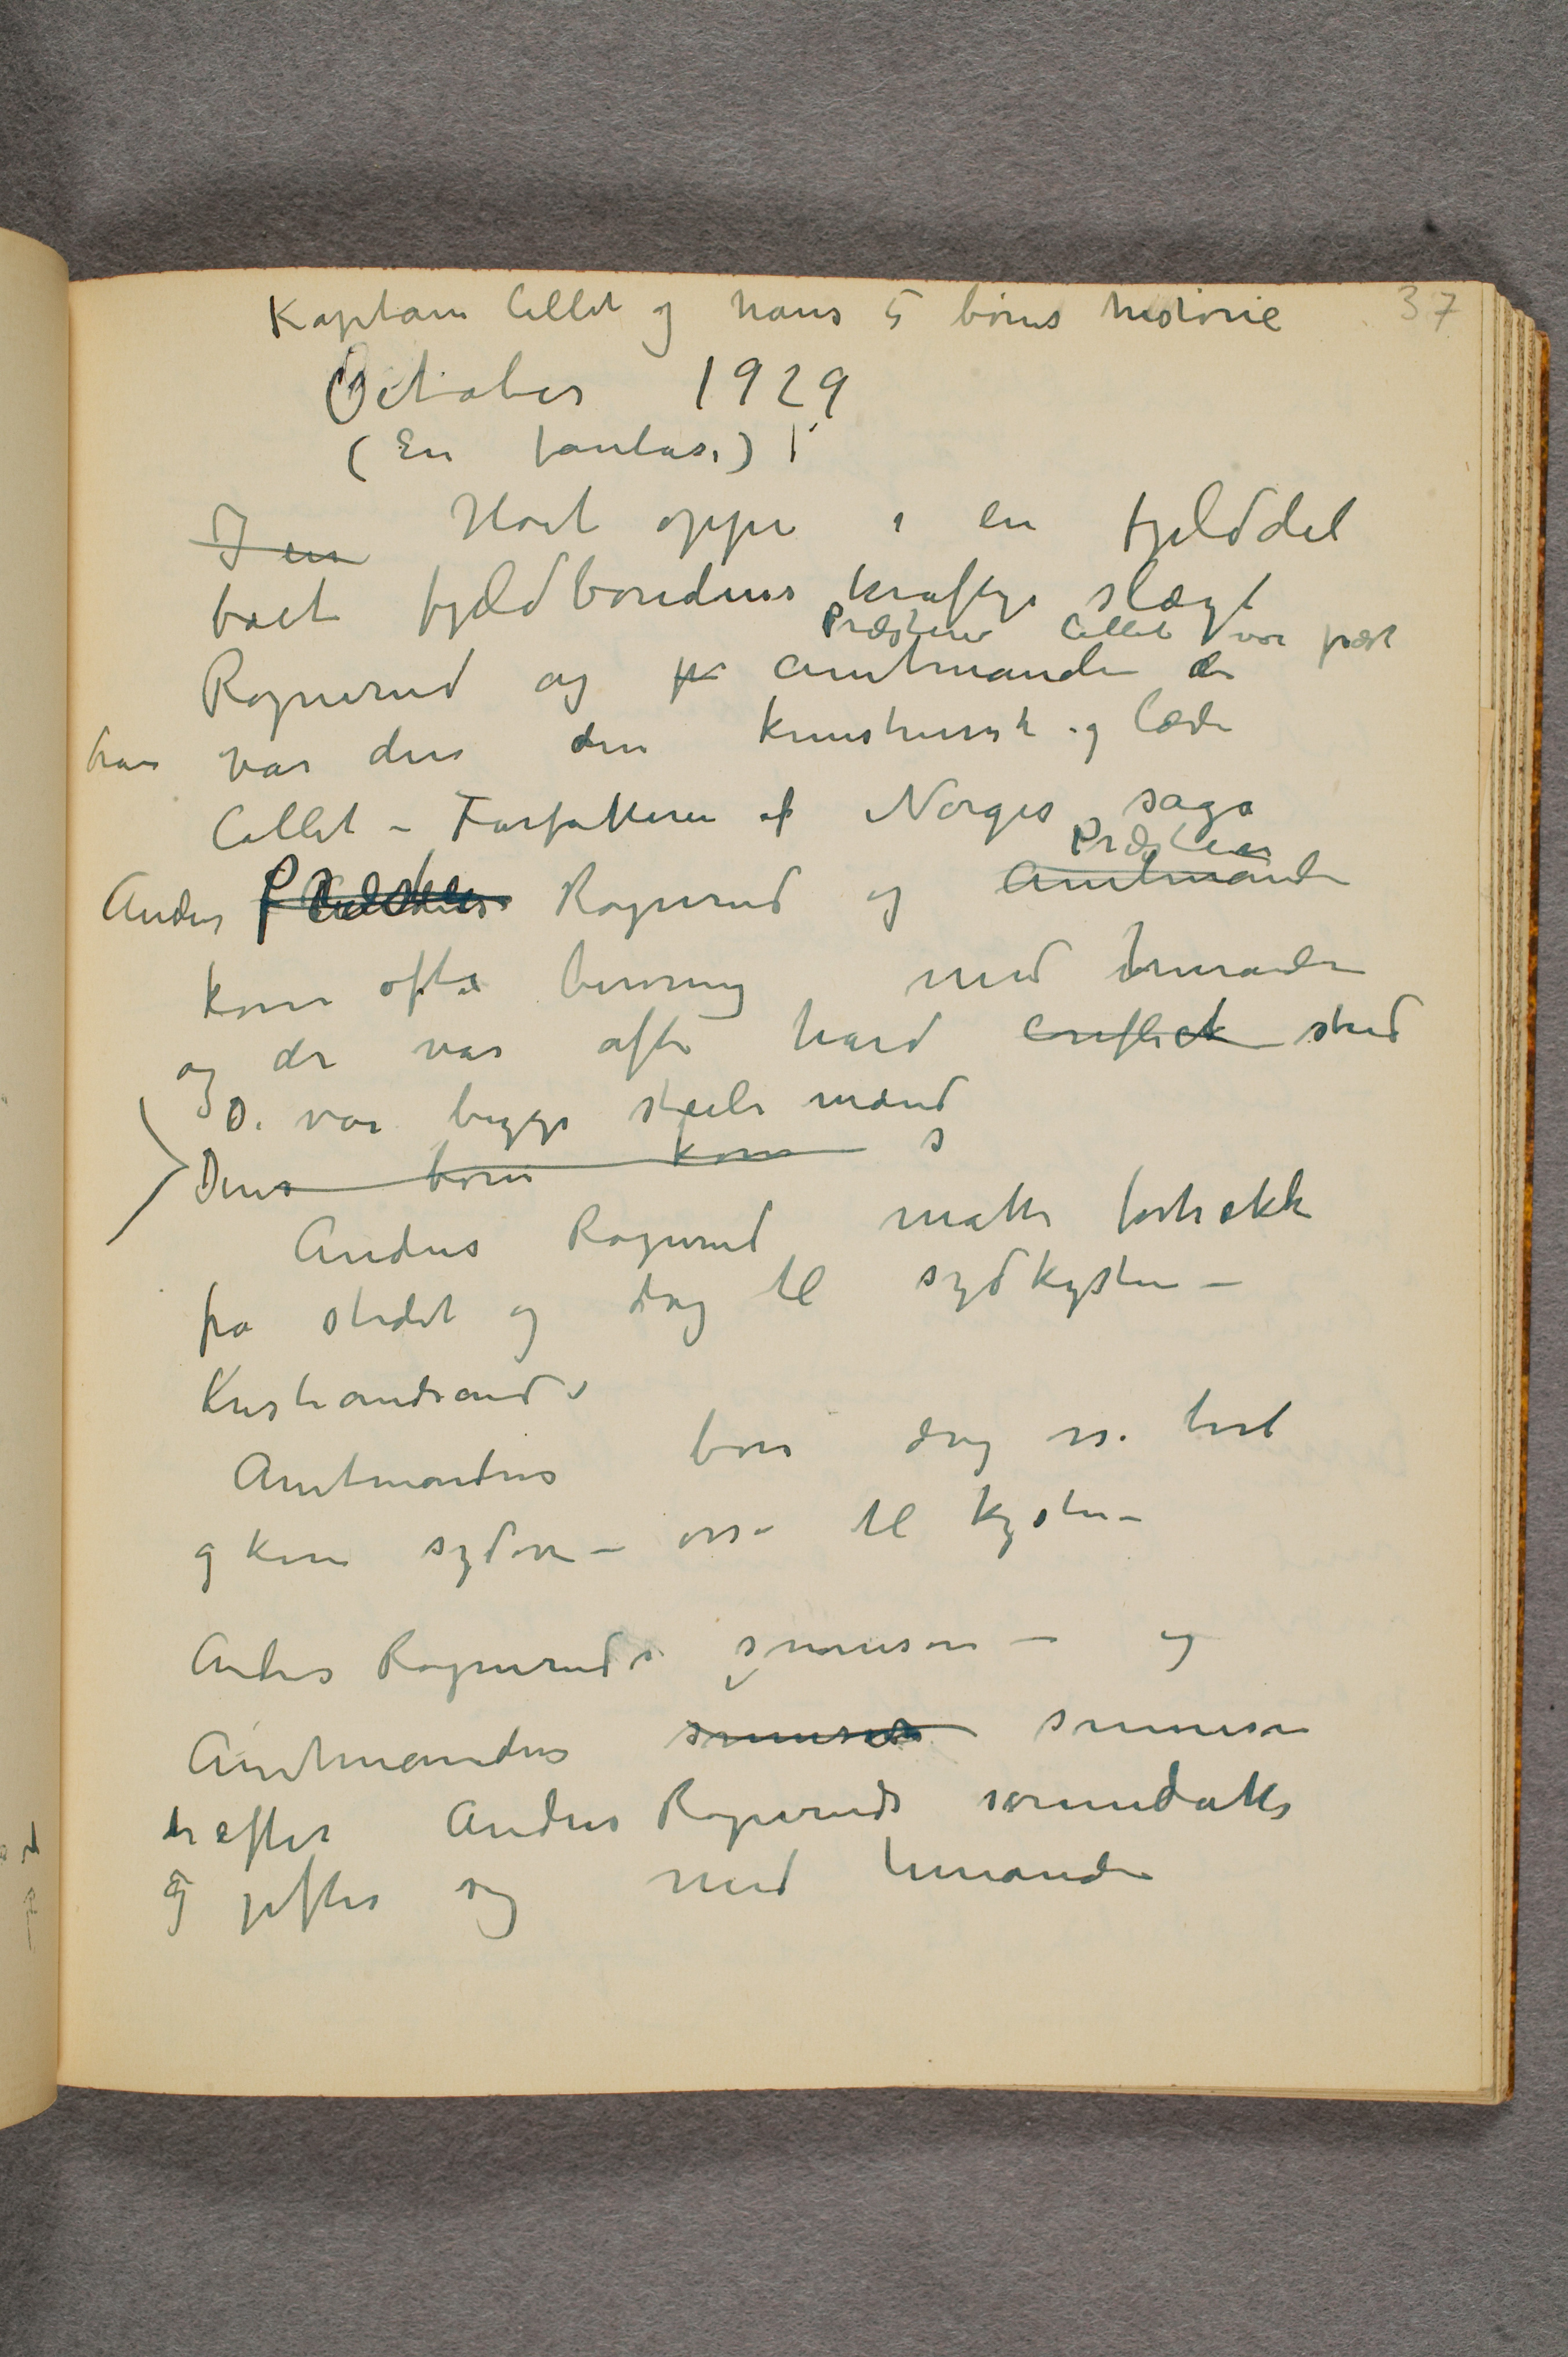 Kaptain Collet og hans 5 børns historie 37
October 1929
(En fantasi)
I en Høit oppe i en fjelddal
boet fjeldbondens kraftige slægt
Præsten Collet var præst
Rognerud og pr amtmanden der
han var den den kunstneriske og lærde
Collet – Forfatteren af Norges saga
Præsten
Anders Rognerud og Amtmanden
kom ofte berøring med hinanden
og der var ofte hard conflict strid
De var begge steile mænd
Deres børn kom s
Anders Rognerud måtte fortrække
fra stedet og drog til sydkysten –
Kristiandsand
Amtmandens børn drog bort
og kom sydover – osså til kysten –
Anders Rogneruds sønnesøn – og
Amtmandens sønnesøn sønnesøn
træffer Anders Rogneruds sønnedatter
og gifter sig med hinanden